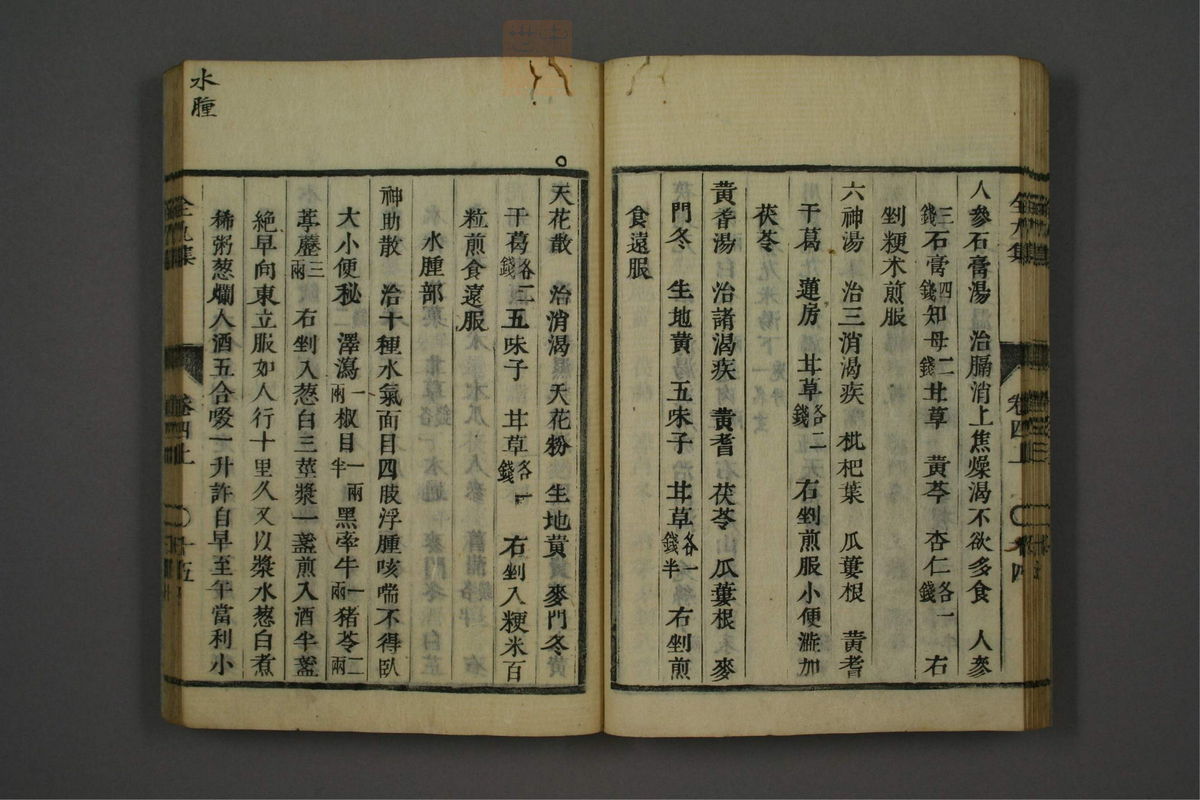 人參石膏湯　治膈消上焦燥渴不欲多食　人參
三錢石膏四錢知母二錢甘草　黃芩　杏仁各一錢　右
剉粳米煎服
六神湯　治三消渴疾　枇杷葉　瓜蔞根　黃耆
干葛　蓮房　甘草各二錢　右剉煎服小便澁加
茯苓
黃耆湯　治諸渴疾　黃耆　茯苓　瓜蔞根　麥
門冬　生地黃　五味子　甘草各一錢半　右剉煎
食遠服
天花散　治消渴　天花粉　生地黃　麥門冬
干葛各二錢五味子　甘草各一錢　右剉入粳米百
粒煎食遠服
水腫部
神助散　治十種水氣面目四肢浮腫咳喘不得臥
大小便秘　澤瀉一兩椒目一兩半黑牽牛一兩猪苓二兩
葶藶三兩　右剉入葱白三莖漿一盞煎入酒半盞
絶早向東立服如人行十里久又以漿水葱白煮
稀粥葱爛入酒五合啜一升許自早至午當利小
水腫
卷四上
十五